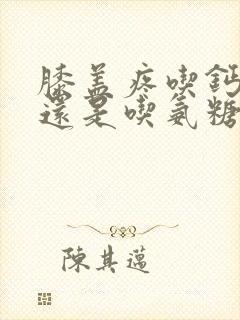 膝盖疼喫鈣
還是喫氨糖
陳其邁